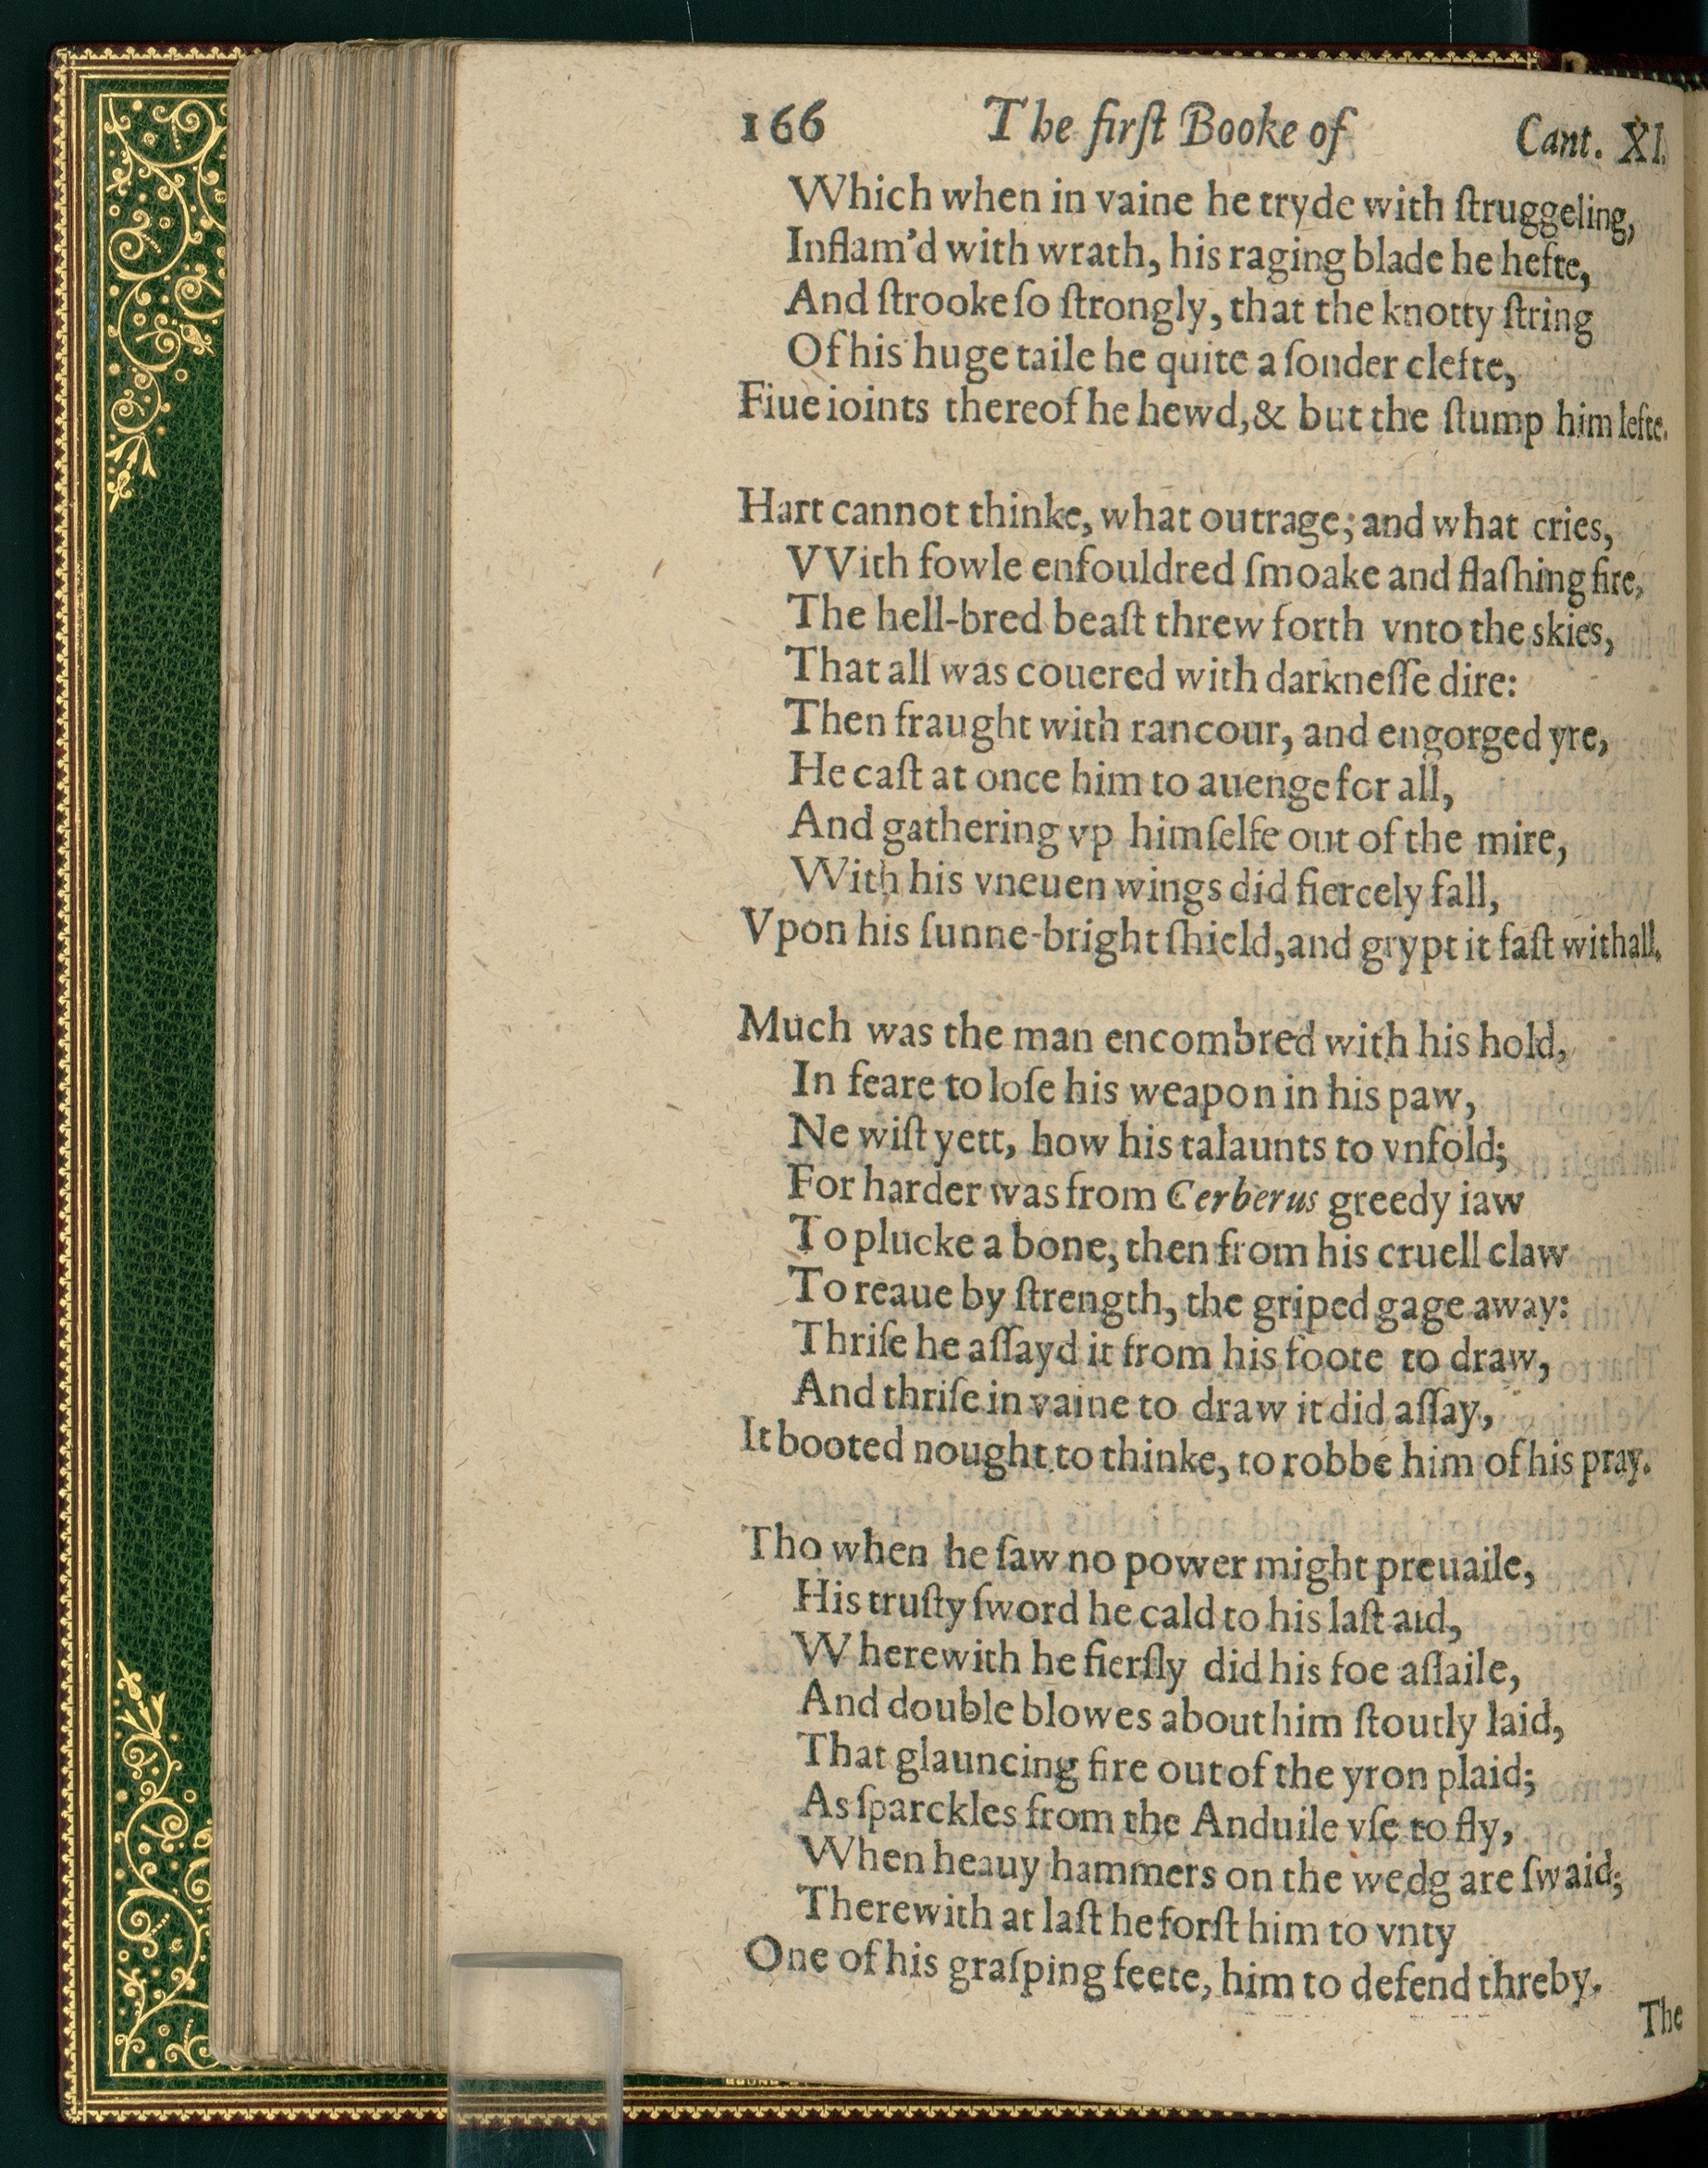 166 The firſt Booke of Cant. XI.
Which when in vaine he tryde with ſtruggeling,
Inflam'd with wrath, his raging blade he hefte,
And ſtrooke ſo ſtrongly, that the knotty ſtring
Of his huge taile he quite a ſonder clefte,
Fiue ioints thereof he hewd, & but the ſtump him lefte.
Hart cannot thinke, what outrage, and what cries,
VVith fowle enfouldred ſmoake and flaſhing fire,
The hell-bred beaſt threw forth vnto the skies,
That all was couered with darkneſſe dire:
Then fraught with rancour, and engorged yre,
He caſt at once him to auenge for all,
And gathering vp himſelfe out of the mire,
With his vneuen wings did fiercely fall,
Vpon his ſunne-bright ſhield, and grypt it faſt withall.
Much was the man encombred with his hold,
In feare to loſe his weapon in his paw,
Ne wiſt yett, how his talaunts to vnfold;
For harder was from Cerberus greedy iaw
To plucke a bone, then from his cruell claw
To reaue by ſtrength, the griped gage away:
Thriſe he aſſayd it from his foote to draw,
And thriſe in vaine to draw it did aſſay,
It booted nought to thinke, to robbe him of his pray.
Tho when he ſaw no power might preuaile,
His truſty ſword he cald to his laſt aid,
Wherewith he fierſly did his foe aſſaile,
And double blowes about him ſtoutly laid,
That glauncing fire out of the yron plaid;
As ſparckles from the Anduile vſe to fly,
When heauy hammers on the wedg are ſwaid;
Therewith at laſt he forſt him to vnty
One of his graſping feete, him to defend threby.
The